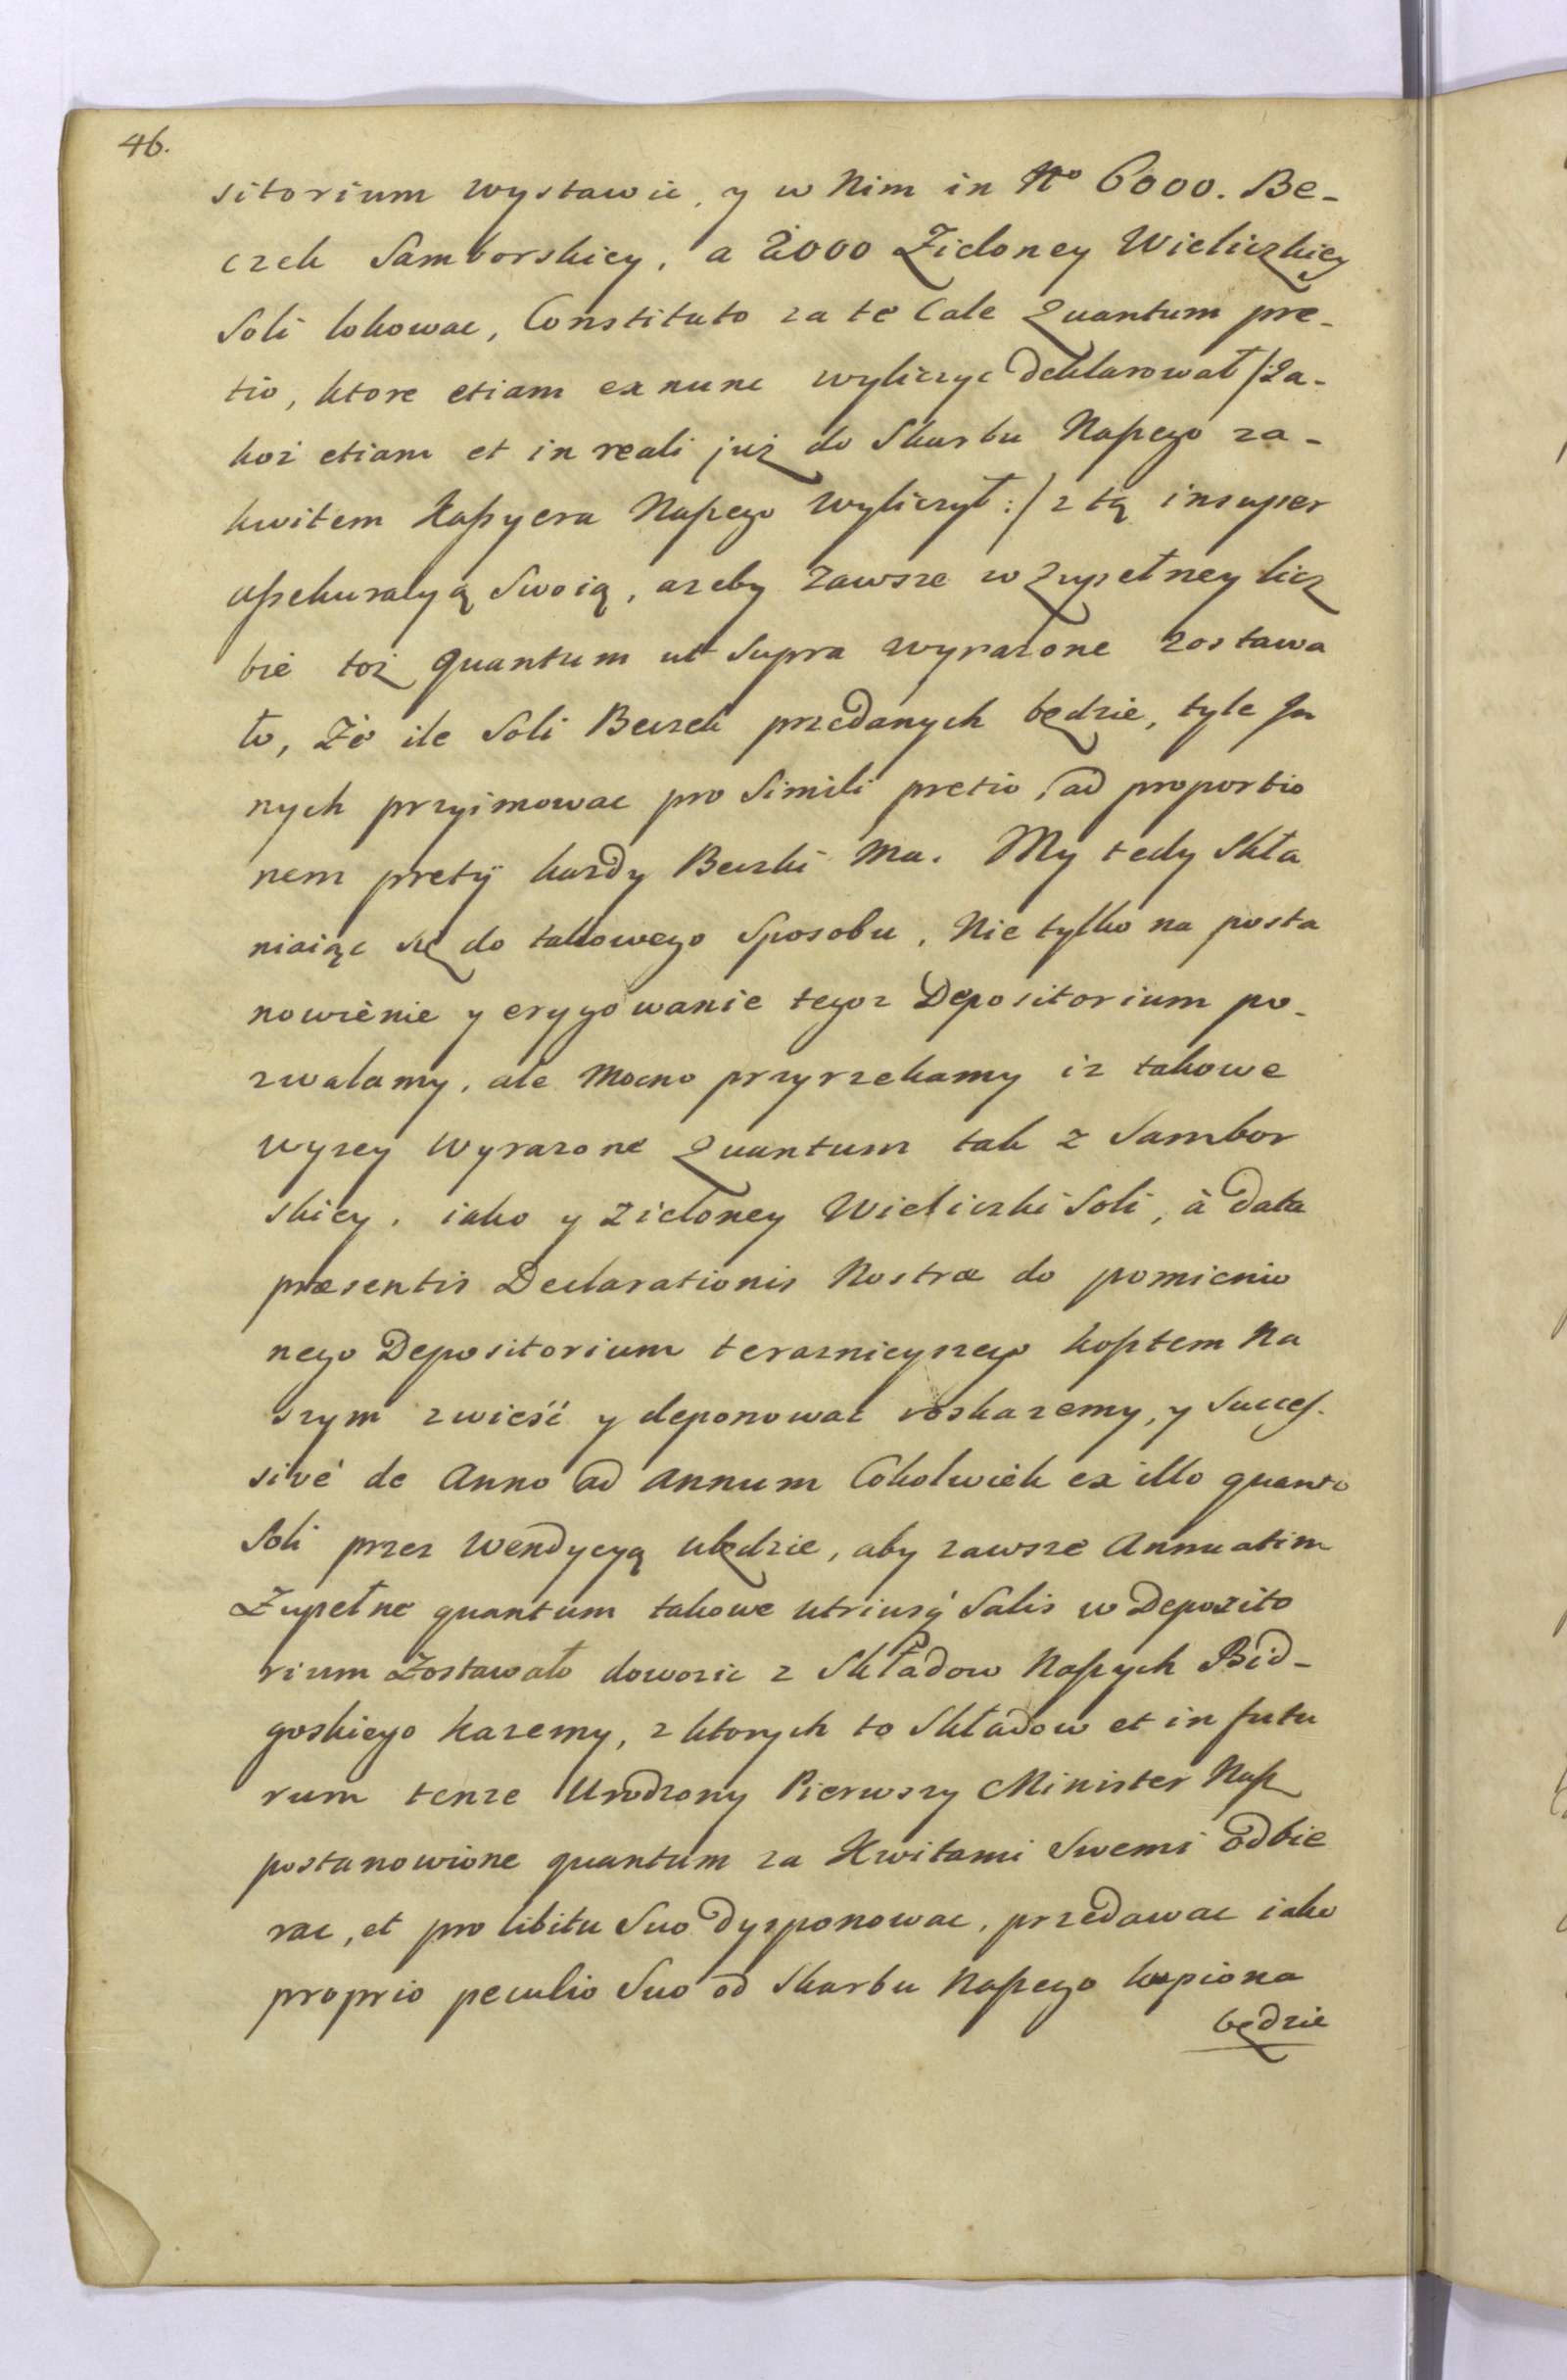 46.
sitorium wystawic, y w Nim in Nº 6000. Be-
czek Samborskiey, a 2000 Zieloney Wieliczkiey
Soli lokowac, Constituto za te Cale Quantum pre-
tio, ktore etiam ex nunc wyliczyc deklarował /:Ja-
koż etiam et in reali już do Skarbu Naßego za-
kwitem Kaßyera Naßego wyliczył:/ z tą insuper
aßekuracyą Swoią, azeby zawsze w zupełney licz
bie toż quantum ut supra wyrazone zostawa
ło, Że ile Soli Beczek przedanych będzie, tyle In
nych przyimowac pro Simili pretio, ad proportio
nem pretij kazdy Beczki Ma. My tedy Skła
niaiąc się do takowego Sposobu, Nie tylko na posta
nowienie y erygowanie tegoz Depositorium po-
zwalamy, ale Mocno przyrzekamy iz takowe
wyzey Wyrazone Quantum tak z Sambor
skiey, iako y Zieloney Wieliczki Soli, à data
præsentis Declarationis Nostræ do pomienio
nego Depositorium teraznieyszego koßtem Na
szym zwieść y deponowac roskazemy, y Succes-
sivé de Anno ad Annum Cokolwiek ex illo quanto
Soli przez Wendycyą ubędzie, aby zawsze Annuatim
Zupełne quantum takowe utriusq́ Salis w Deposito
rium Zostawało dowozic z Składow Naßych Bid-
goskiego kazemy, z ktorych to Składow et in futu
rum tenze Urodzony Pierwszy Minister Naß
postanowione quantum za Kwitami Swemi odbie
rac, et pro libitu Suo dysponowac, przedawac iako
proprio peculio Suo od Skarbu Naßego kupiona
będzie